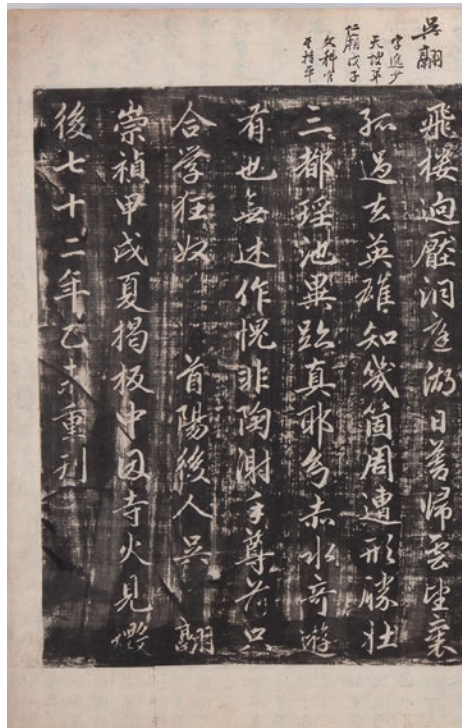 吳翮
字逸少
天坡弟
仁廟戊子
文科官
至持平
飛樓逈壓洞庭湖日暮歸雲望裏
孤過去英雄知幾箇周遭形勝壯
三都瑤池異跡真耶否赤水奇遊
有也無述作愧非陶謝手尊前只
合学狂奴 首陽後人吳 翮
崇禎甲戌夏揭板中因寺火見燬
後七十二年乙未重刊